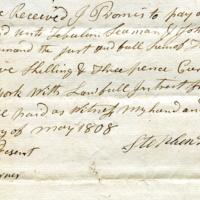 Received I Promis to pay
and unto Zebulon Seaman
mand the just and full Sum
Shilling & Three pence Cur
York With Lawfull Intrest
paid as witness my hand and
of may 1808
Present
Stephen